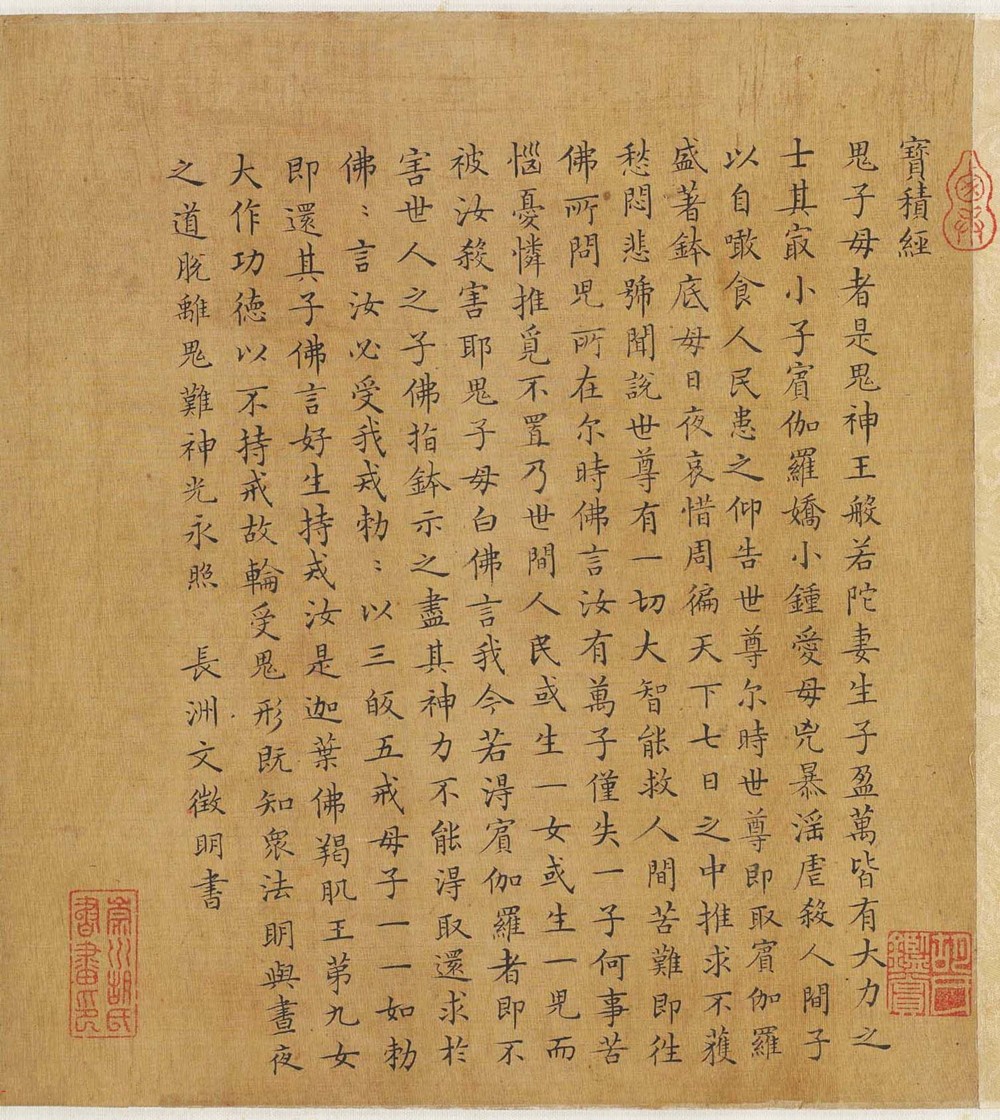 寶積經
鬼子母者是鬼神王般若陀妻生子盈萬皆有大力之
士其㝡小子賔伽羅嬌小鍾愛母兇暴滛虐殺人間子
以自噉食人民患之仰告世尊尔時世尊即取賔伽羅
盛著鉢底母日夜哀惜周徧天下七日之中推求不獲
愁悶悲號聞說世尊有一切大智能救人間苦難即徃
佛所問兒所在尔時佛言汝有萬子僅失一子何事苦
惱憂憐推覓不置乃世間人民或生一女或生一兒而
被汝殺害耶鬼子母白佛言我今若淂賔伽羅者即不
害世人之子佛指鉢示之盡其神力不能淂取還求於
佛〻言汝必受我戒勅〻以三皈五戒母子一一如勅
即還其子佛言好生持戒汝是迦葉佛羯肌王第九女
大作功徳以不持戒故輪受鬼形既知衆法明與晝夜
之道脫離鬼難神光永照　長洲文徵明書
崇川胡氏
書畫氏印